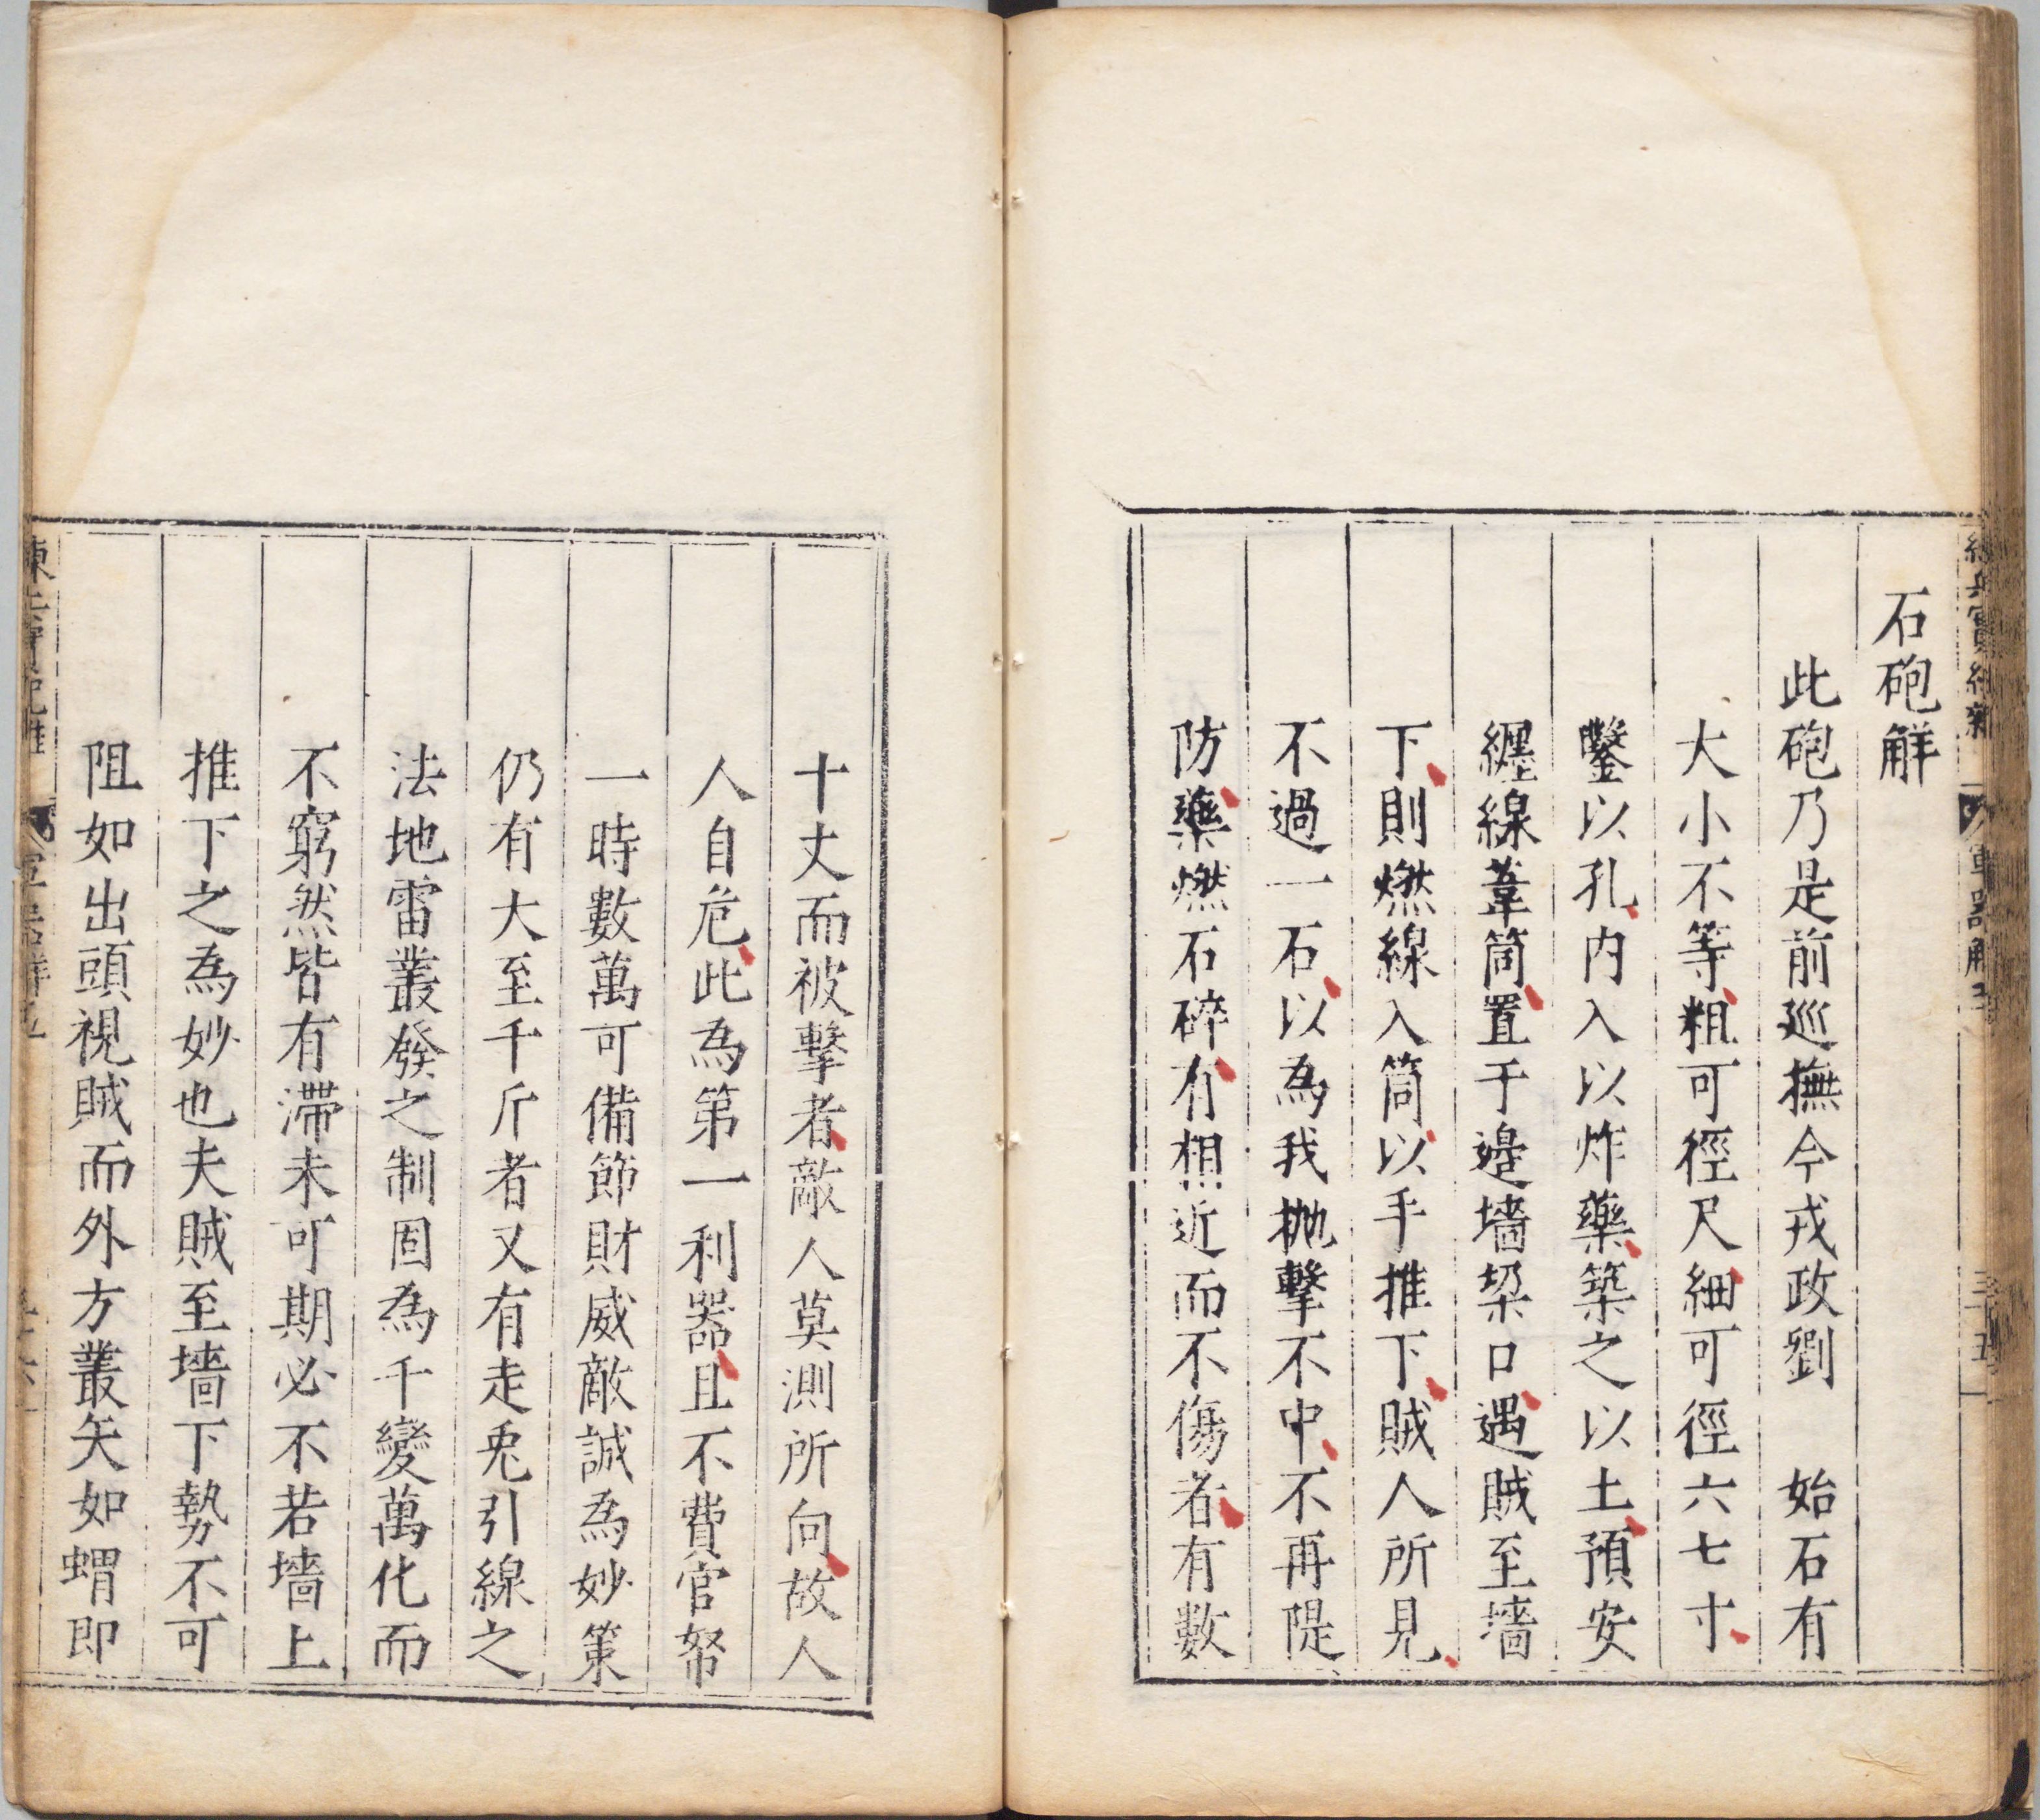 石砲解
此砲乃是前廵撫今戎政劉　始石有
大小不等粗可徑尺細可徑六七寸
鑿以孔内入以炸藥築之以土預安
纏線葦筒置于邊墻垜口遇賊至墻
下則燃線入筒以手推下賊人所見
不過一石以為我抛擊不中不再隄
防藥燃石碎有相近而不傷者有數
十丈而被擊者敵人莫測所向故人
人自危此為第一利器且不費官帑
一時數萬可備節財威敵誠為妙策
仍有大至千斤者又有走兎引線之
法地雷叢發之制固為千變萬化而
不窮然皆有滯未可期必不若墻上
推下之為妙也夫賊至墻下勢不可
阻如出頭視賊而外方叢矢如蝟即